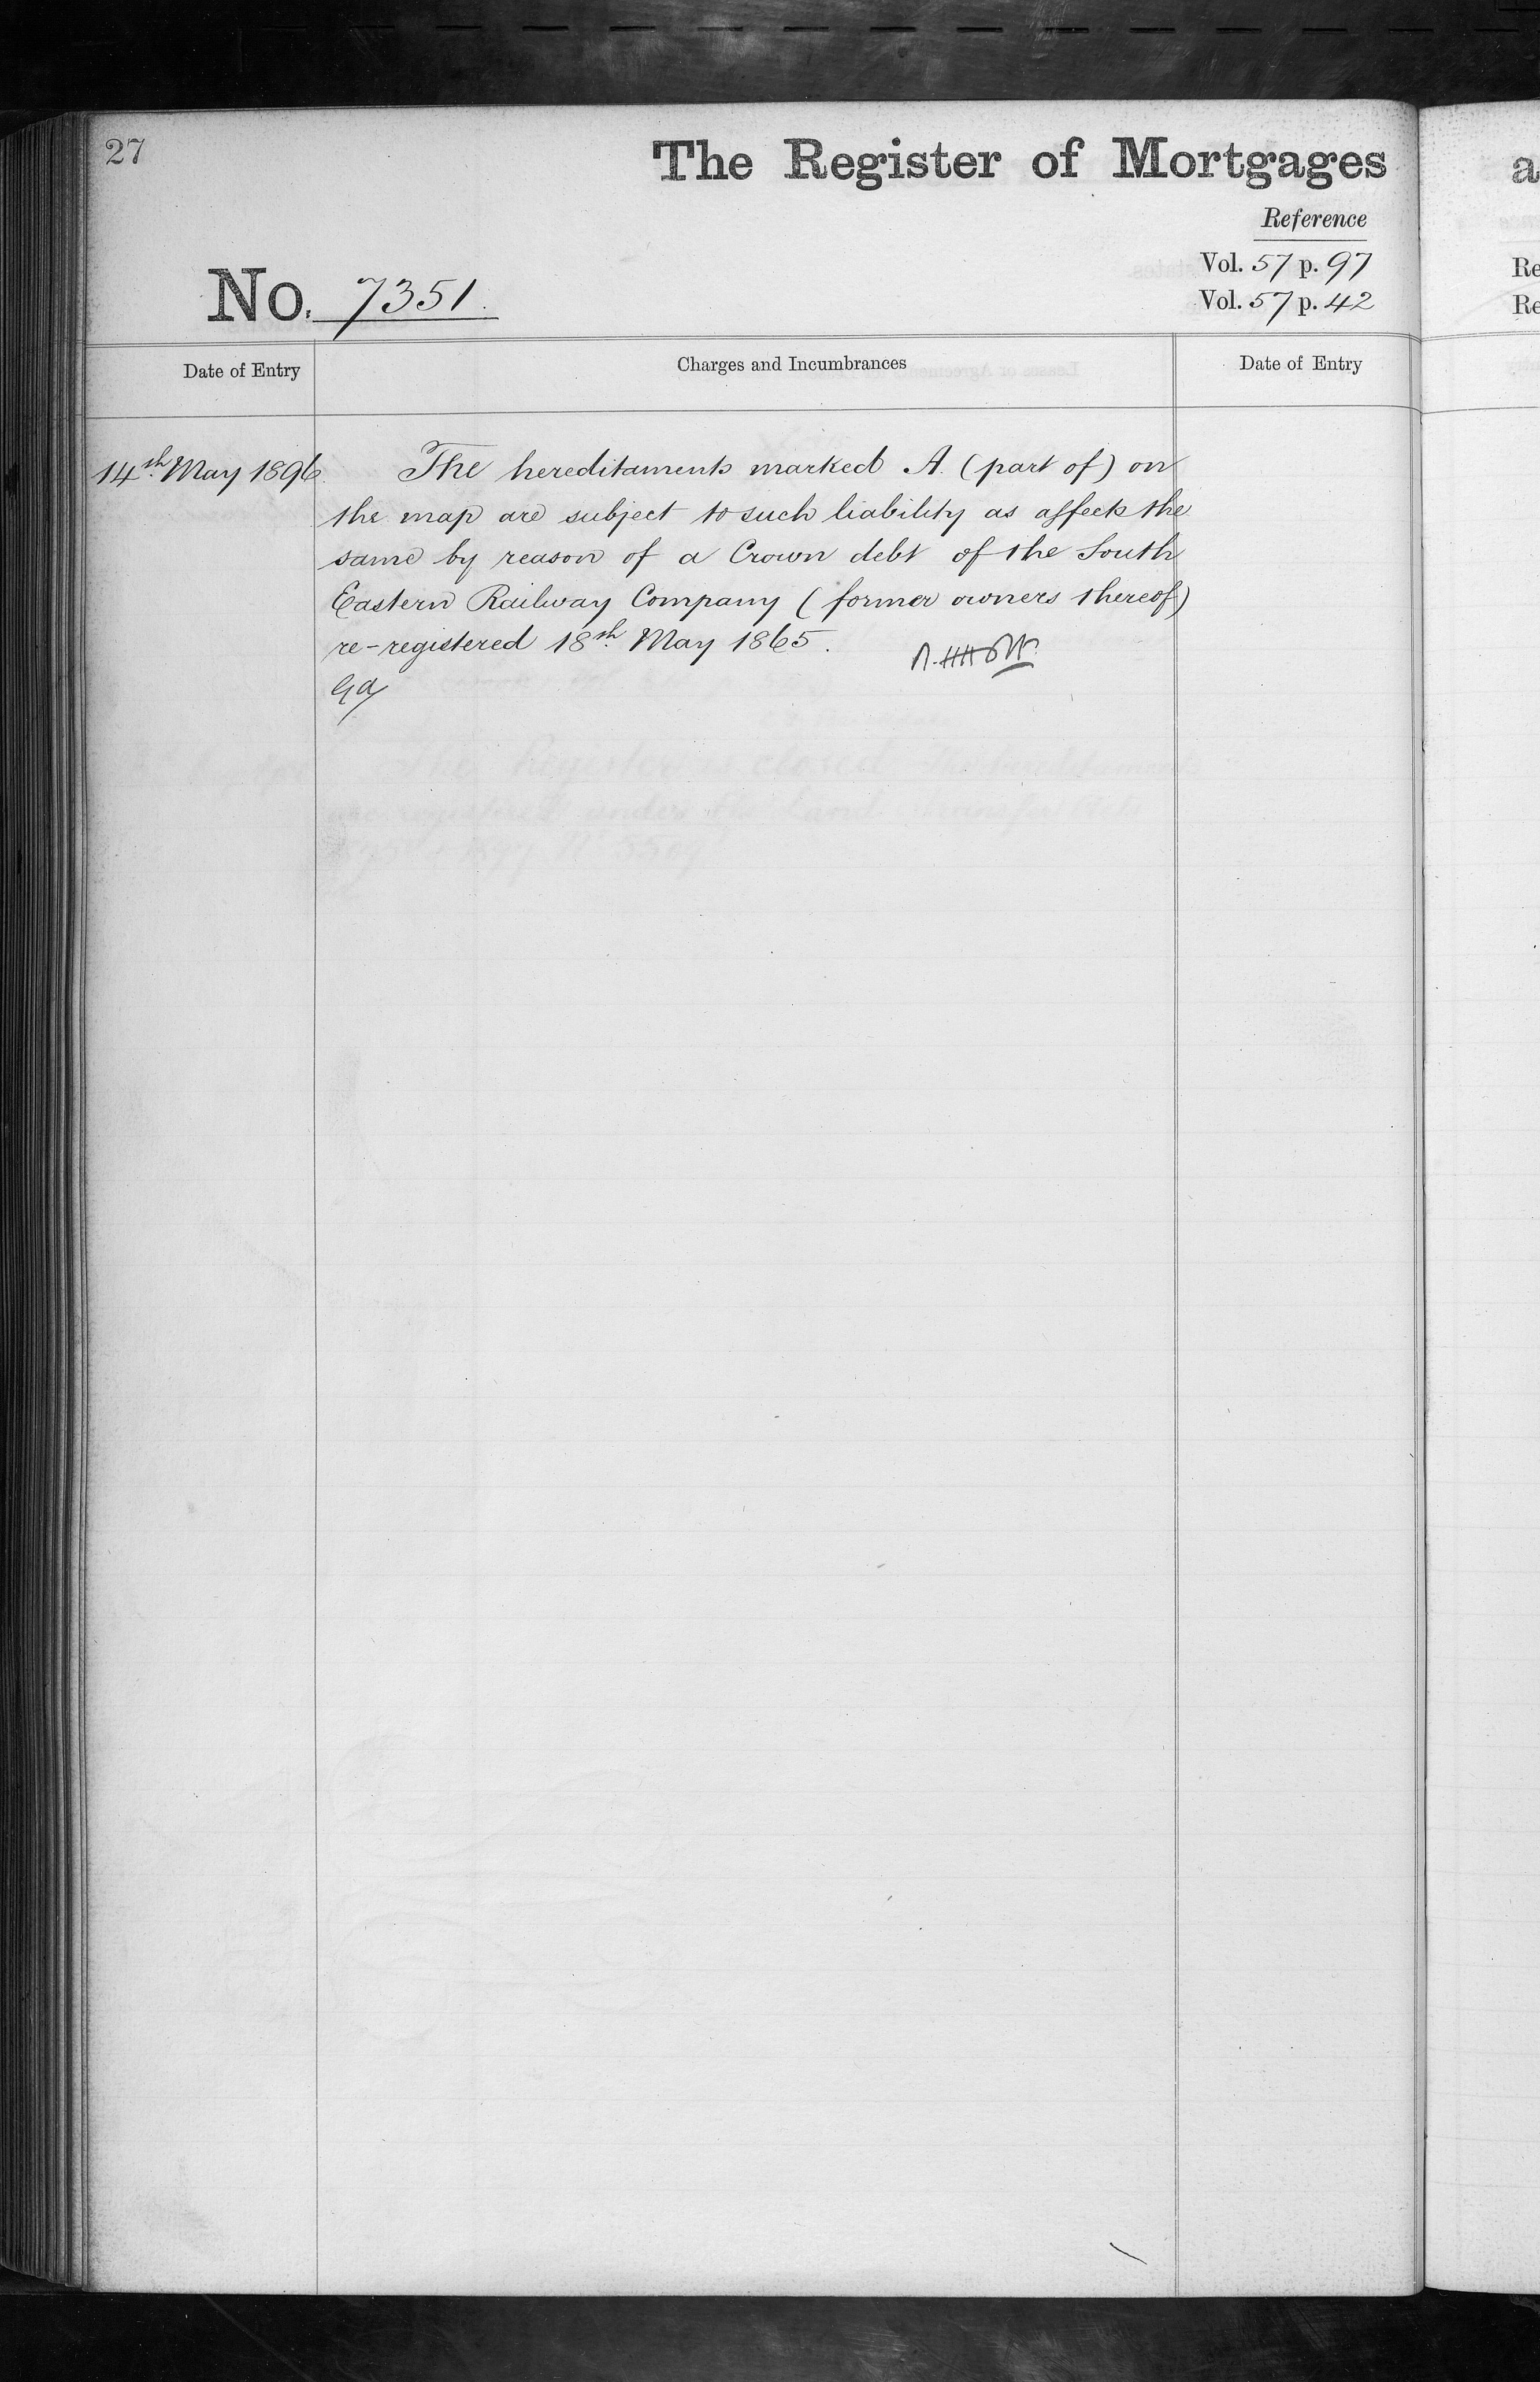 27
The Register of Mortgages
Reference
Vol. 57 p. 97
Vol. 57 p. 42
No. 7351.
Date of Entry
Charges and Incumbrances
Date of Entry
14th May 1896.
The hereditaments marked A. (part of) on
the map are subject to such liability as affects the
same by reason of a Crown debt of the South
Eastern Railway Company (former owners thereof)
re-registered 18th May 1865.
a
Re
Re